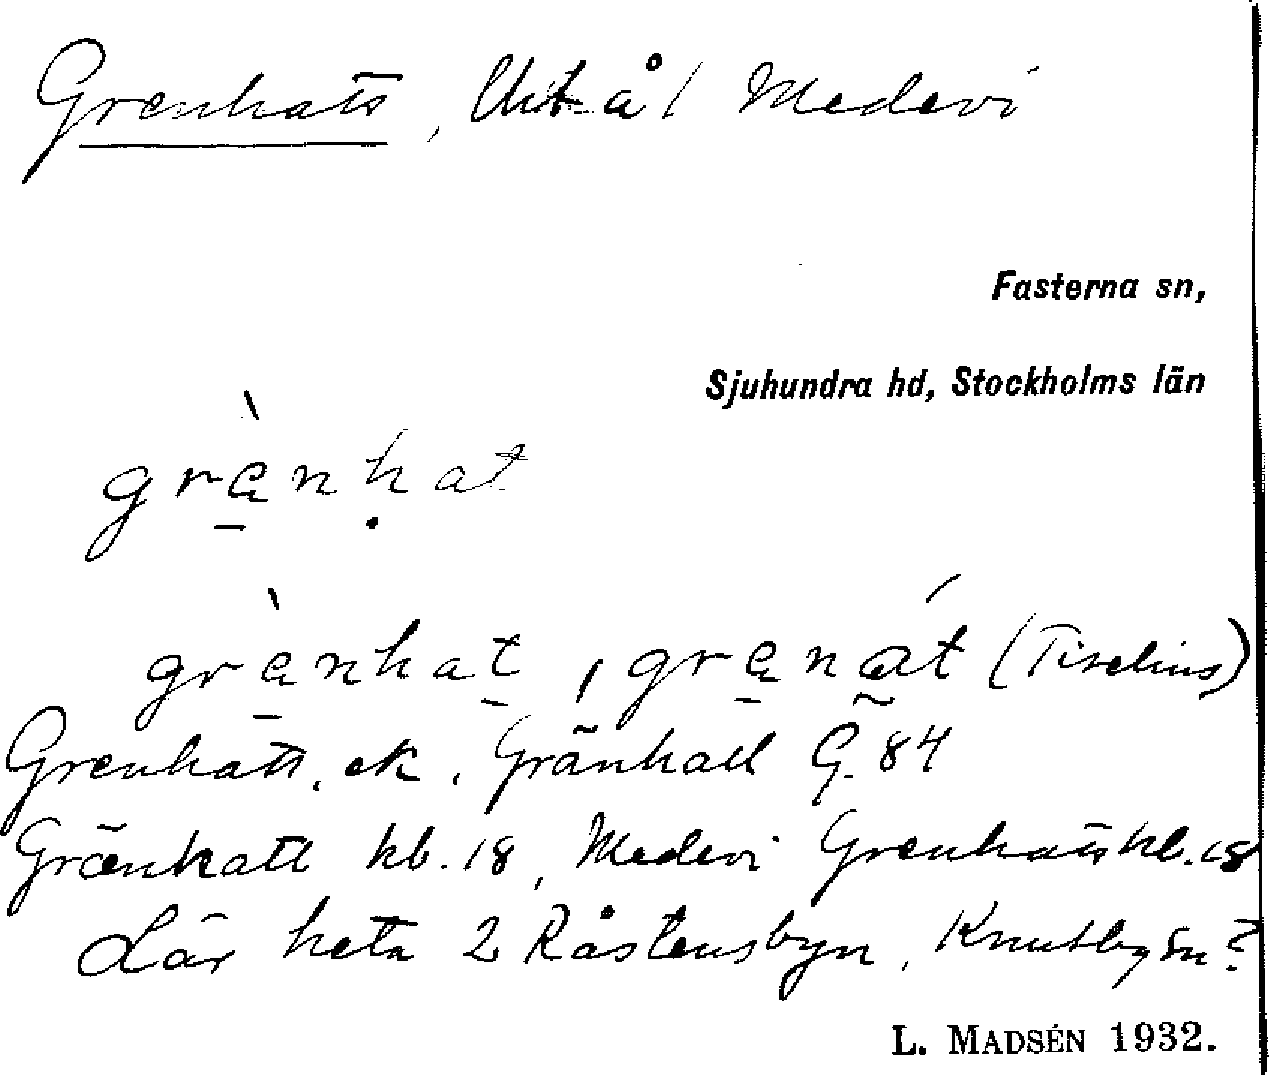 Grenhatt, Utå / Medevi
Fasterna sn,
Sjuhundra hd, Stockholms län
grànhat
grànhat, granát (Tiselius)
Grenhatt, ek. Gränhatt G. 84
Gränhatt kb. 18, Medevi Grenhatt kb. 18
Lär heta 2 Råstensbyn, Knutby sn?
L. MADSÉN 1932.